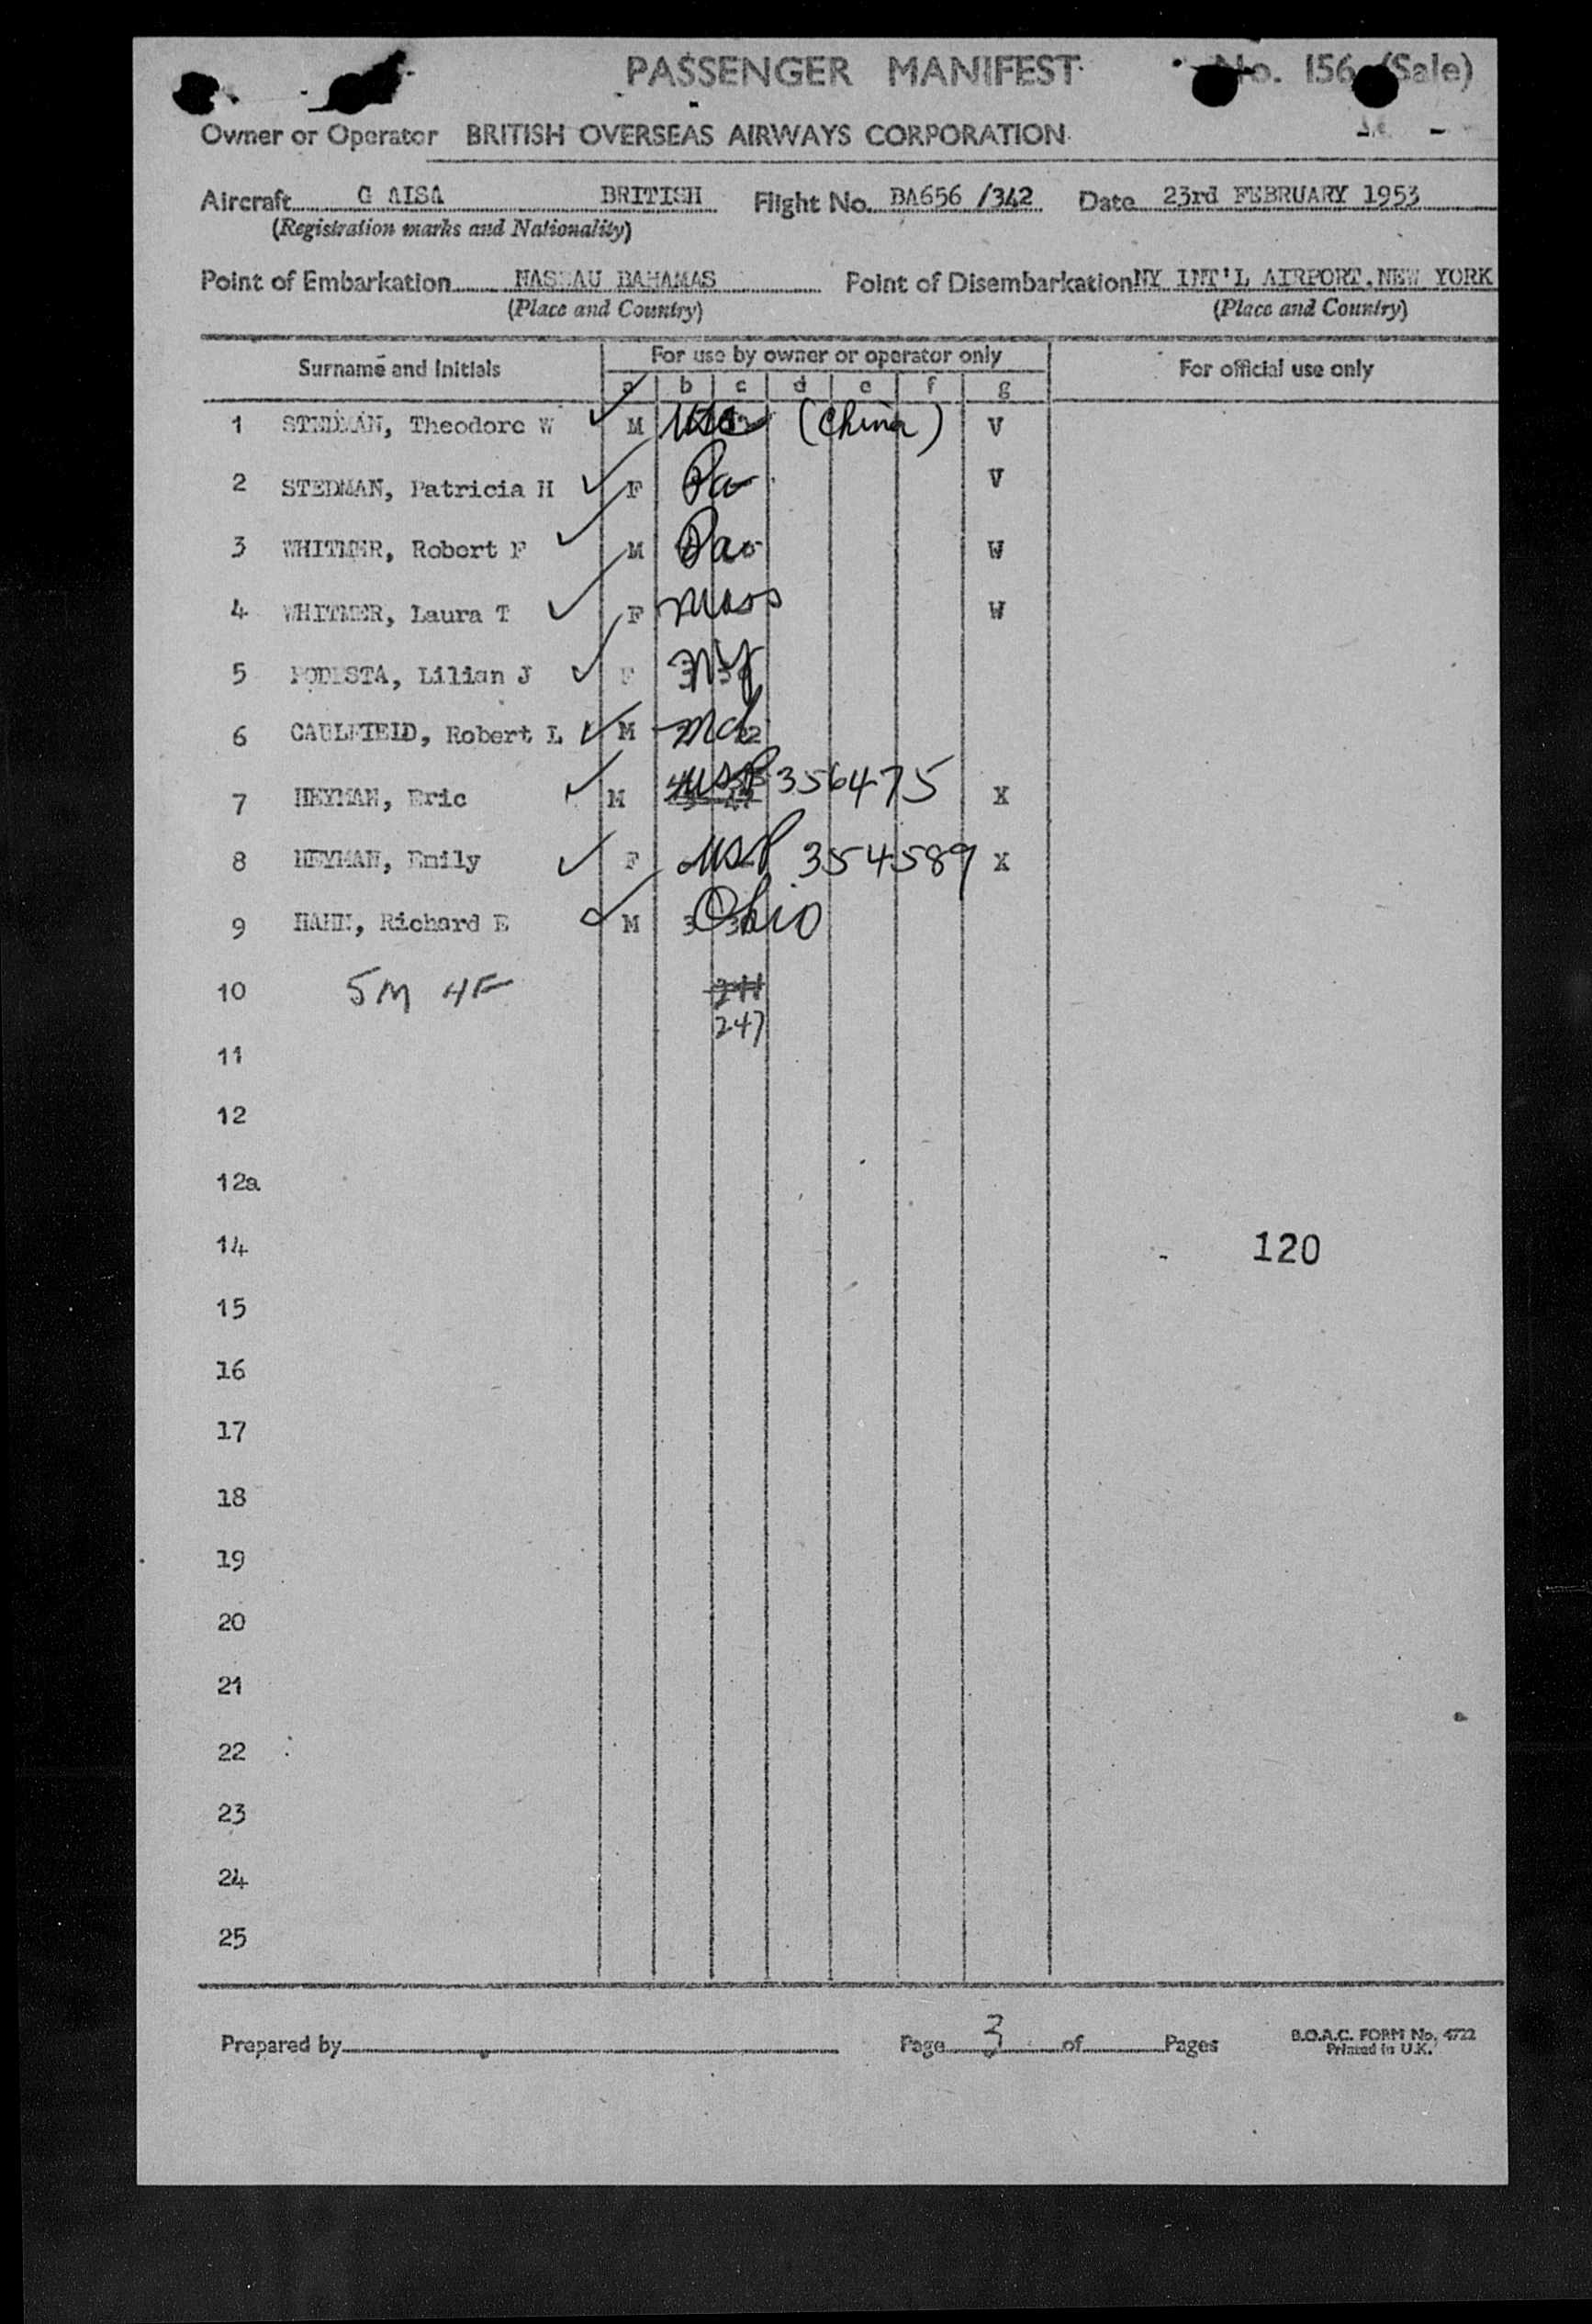 PASSENGER MANIFEST No. 156 (Sale)
Owner or Operator BRITISH OVERSEAS AIRWAYS CORPORATION
Aircraft G AISA BRITISH Flight No. BA656 /342 Date 23rd FEBRUARY 1953
(Registration marks and Nationality)
Point of Embarkation NASSAU BAHAMAS Point of Disembarkation NY INT'L AIRPORT, NEW YORK
(Place and Country) (Place and Country)
Surname and Initials For use by owner or operator only For official use only
a b c d e f g
1 STEDMAN, Theodore W M (China) V
2 STEDMAN, Patricia H F Pa V
3 WHITMER, Robert F M Pa W
4 WHITMER, Laura T F Mass W
5 PODESTA, Lilian J F NY
6 CAULFIEID, Robert L M Md
7 HEYMAN, Eric M USP 356475 X
8 HEYMAN, Emily F USP 354589 X
9 HAHN, Richard E M Ohio
10 5M 4F
247
11
12
12a
14 120
15
16
17
18
19
20
21
22
23
24
25
Prepared by Page 3 of Pages B.O.A.C. FORM No. 4722
Printed in U.K.